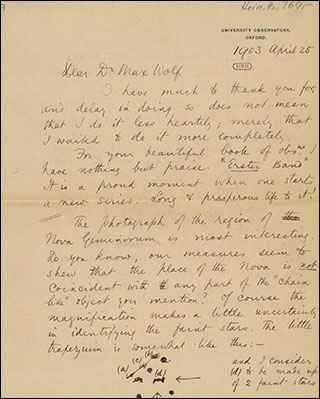 UNIVERSITY OBSERVATORY,
OXFORD.
1903 April 25
Dear Dr Max Wolf
I have much to thank you for,
and delay in doing so does not mean
that I do it less heartily; merely that
I wanted to do it more completely.
For your beautiful book of obsns I
have nothing but praise. "Erster Band"
It is a proud moment when one starts
a new series. Long & prosperous life to it!
The photograph of the region of
Nova Geminorum is most interesting.
Do you know, our measures seem to
shew that the place of the Nova is not
coincident with any part of the "chain
like" object you mention? Of course the
magnification makes a little uncertainty
in identifying the faint stars. The little
trapezium is somewhat like this:—
(a) (c) (b) (d)
and I consider
(d) to be made up
of 2 faint stars